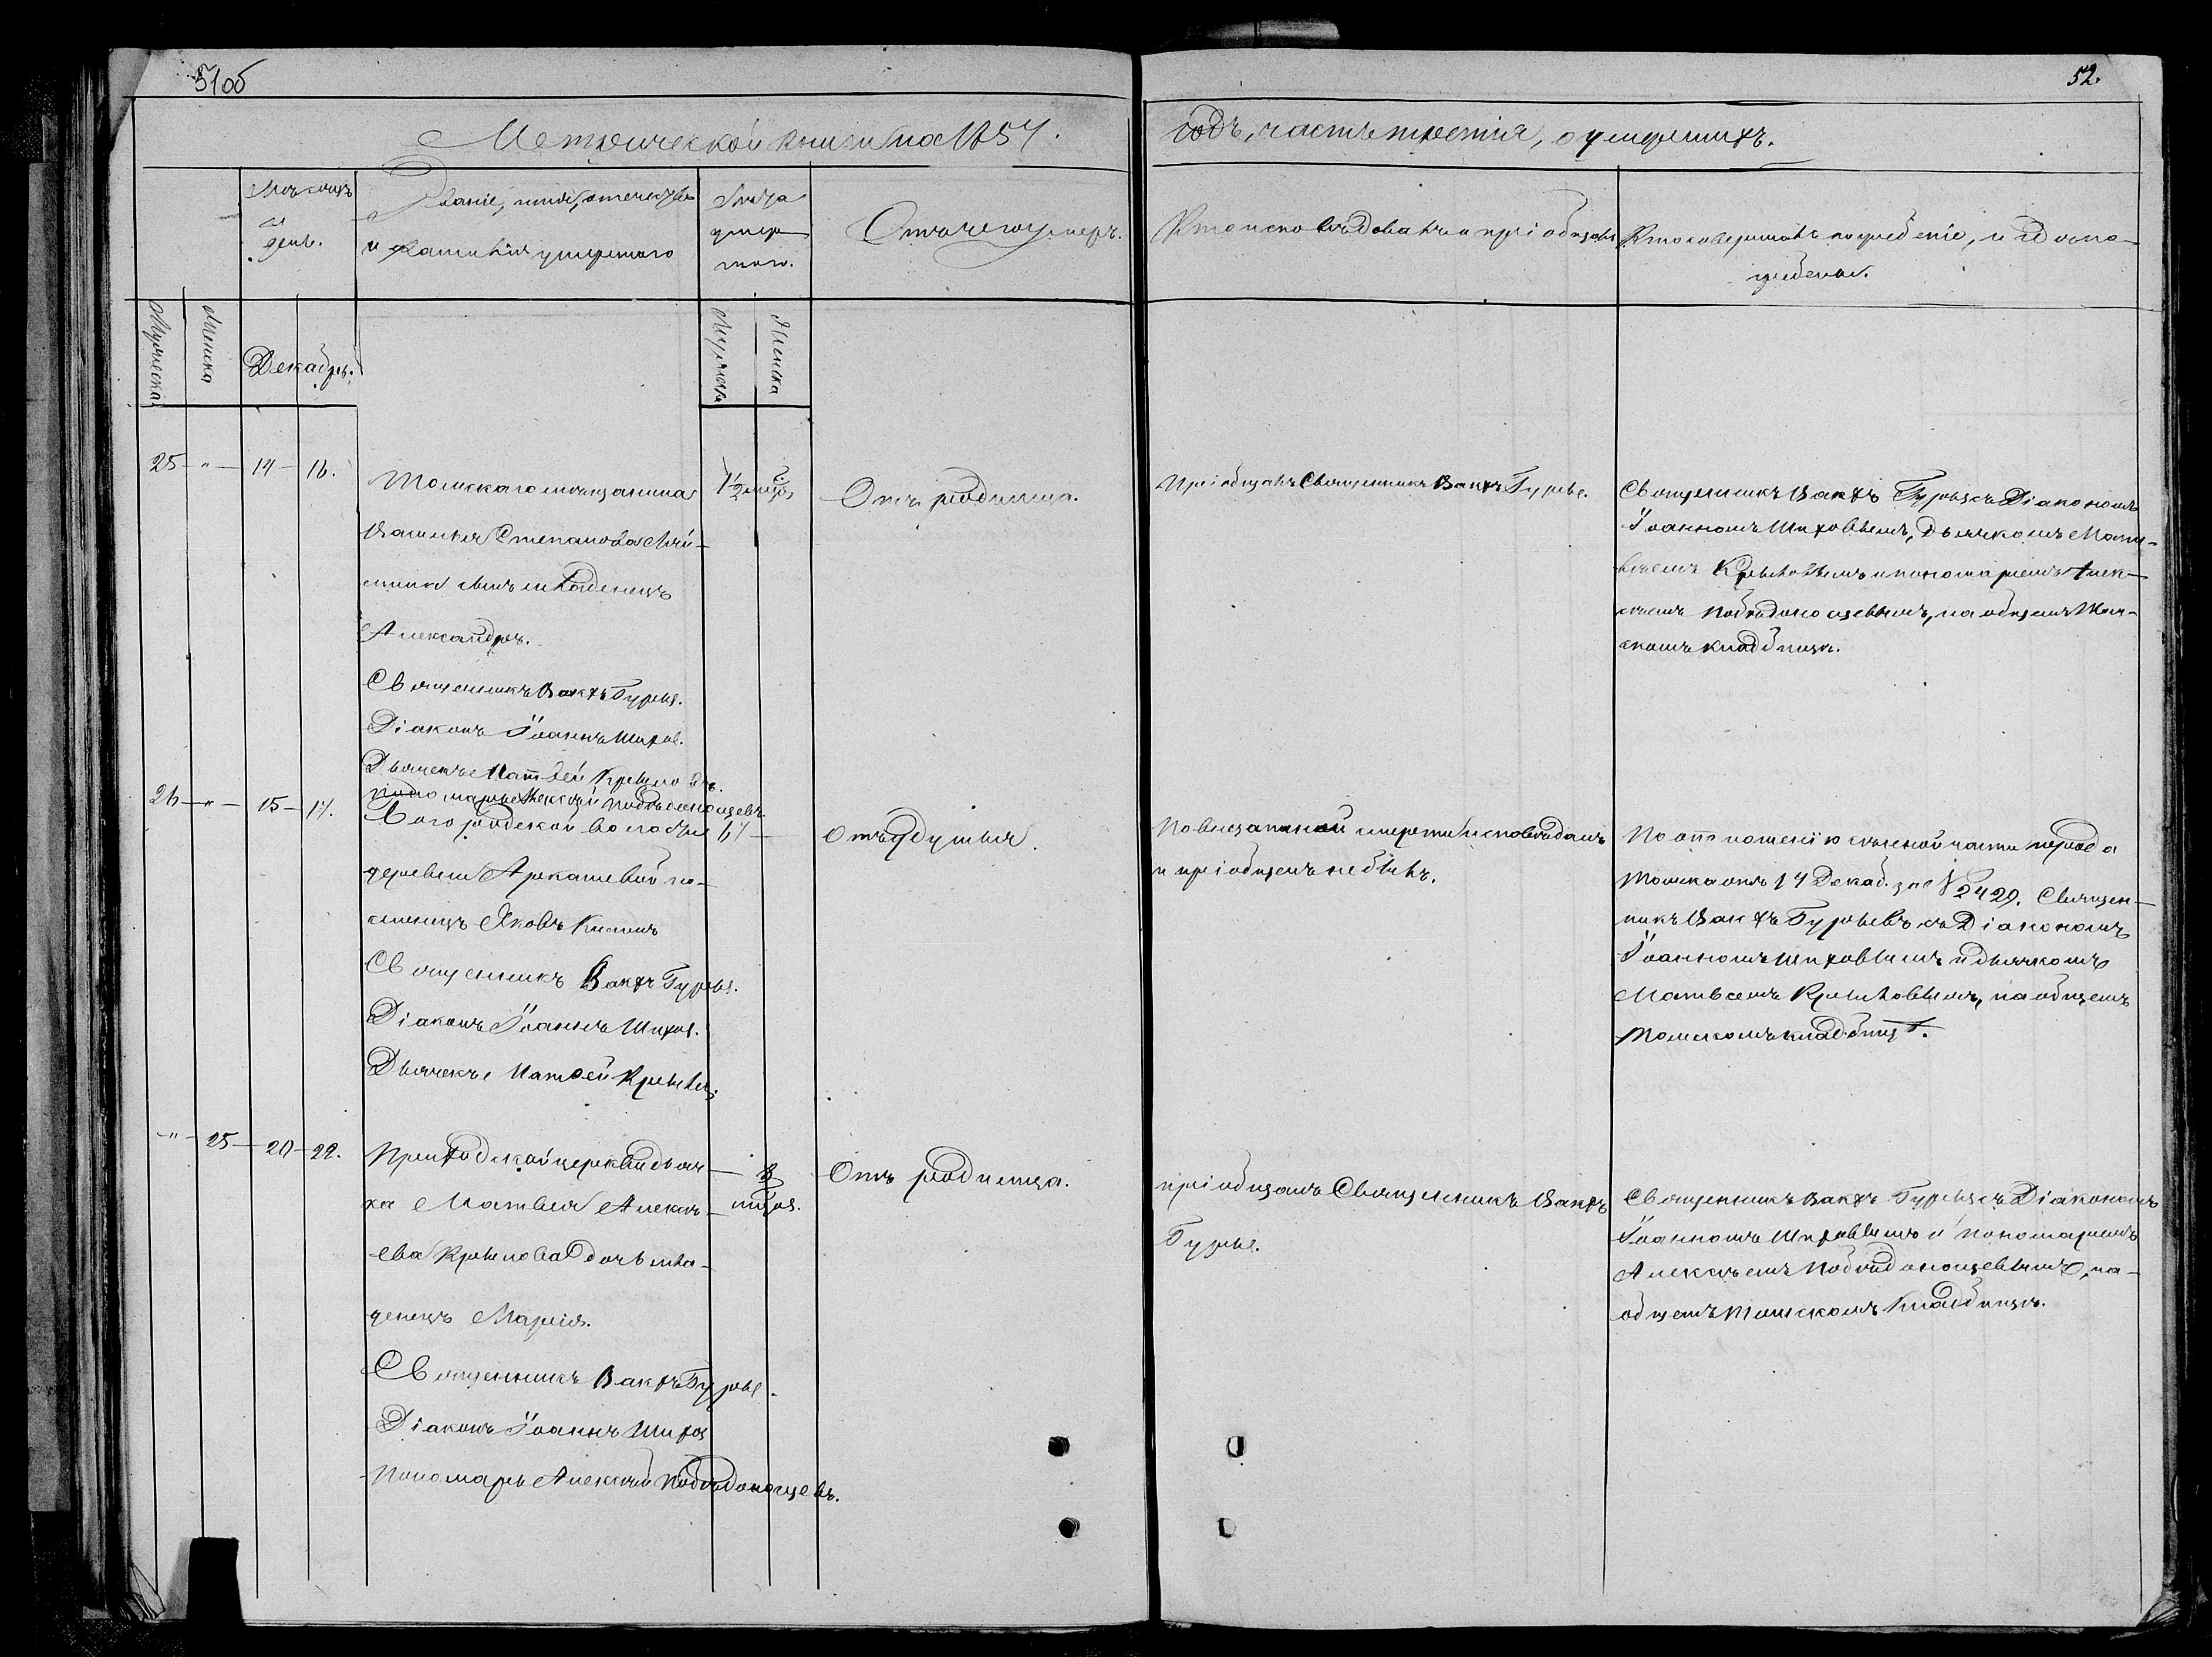 51об
52.
Метрической книги на 1857.
годъ, часть третiя, о умершихъ.
Мѣсяцъ
и
день.
Званiе, имя, отечество
и фамилiя умершаго
Лѣта
умер
шаго.
Отъ чего умеръ.
Кто исповѣдовалъ и прiобщалъ
Кто совершалъ погребенiе, и гдѣ по-
гребены.
Мужеска
Женска
Декабрь.
Мужеска
Женска
25 - " - 14 - 16.
Томскаго мѣщанина
Василья Степанова
сынъ младенецъ
Александръ.
Священникъ Вакхъ Гурьев.
Дiаконъ Iоаннъ Шихов.
Дьячекъ Матвей Крыловъ.
Пономарь Алексѣй Побѣдоносцевъ.
1½ мѣся
Отъ родимца.
Прiобщалъ Священникъ Вакхъ Гурьев.
Священникъ Вакхъ Гурьев съ Дiакономъ
Iоанномъ Шиховымъ, Дьячкомъ Мат-
вѣемъ Крыловымъ и пономаремъ Алек-
сѣемъ Побѣдоносцевымъ, на общемъ Том-
скомъ кладбищѣ.
26 - " - 15 - 17.
Богородской волости
деревни Аркашевой по-
селенецъ Яковъ
Священникъ Вакхъ Гурьев.
Дiаконъ Iоаннъ Шихов.
Дьячекъ Матвей Крылов.
67 -
Отъ удушья.
По внезапной смерти исповѣданъ
и прiобщенъ не былъ.
По отношенiю съѣзжей части города
Томска отъ 17 Декаб. за № 2429. Священ-
никъ Вакхъ Гурьевъ съ Дiакономъ
Iоанномъ Шиховымъ и дьячкомъ
Матвеемъ Крыловымъ, на общемъ
Томскомъ кладбищѣ.
- " - 25 - 20 - 22.
Приходской церкви дьяч-
ка Матвея Алексѣ-
ева Крылова дочь мла-
денецъ Марiя.
Священникъ Вакхъ Гурьев.
Дiаконъ Iоаннъ Шихов
Пономарь Алексѣй Побѣдоносцевъ.
8
мѣсяц.
Отъ родимца.
прiобщалъ Священникъ Вакхъ
Гурьев.
Священникъ Вакхъ Гурьев съ Дiакономъ
Iоанномъ Шиховымъ и пономаремъ
Алексѣемъ Побѣдоносцевымъ, на-
общемъ Томскомъ Кладбищѣ.